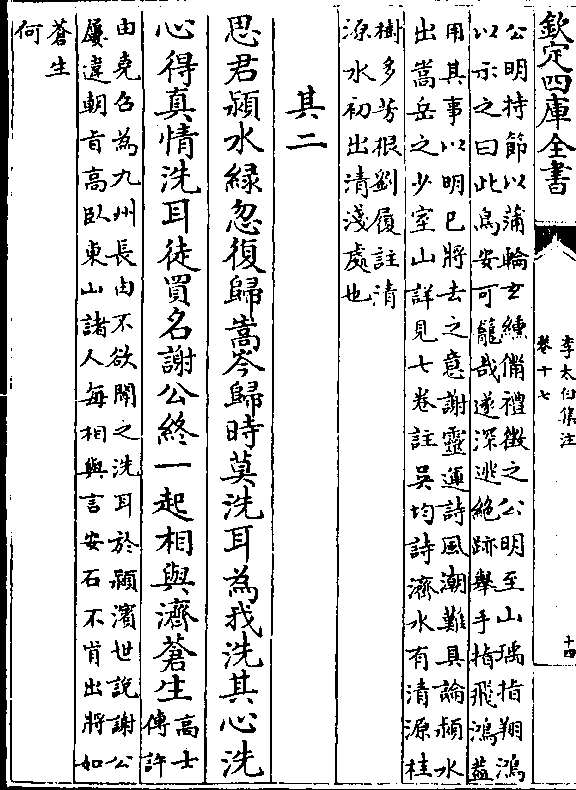 欽定四庫全書
李太白集注
卷十七
十四
公明持節以蒲輪玄纁備禮徵之公明至山瑀指翔鴻
以示之曰此鳥安可籠哉遂深逃絶跡舉手指飛鴻蓋
用其事以明已將去之意謝靈運詩風潮難具論潁水
出嵩岳之少室山詳見七卷註吳均詩濟水有清源桂
樹多芳根劉履註清
源水初出清淺處也
其二
思君潁水緑忽復歸嵩岑歸時莫洗耳為我洗其心洗
心得真情洗耳徒買名謝公終一起相與濟蒼生
高士
傳許
由堯召為九州長由不欲聞之洗耳於潁濱世說謝公
屢違朝旨高臥東山諸人每相與言安石不肯出將如
蒼生
何